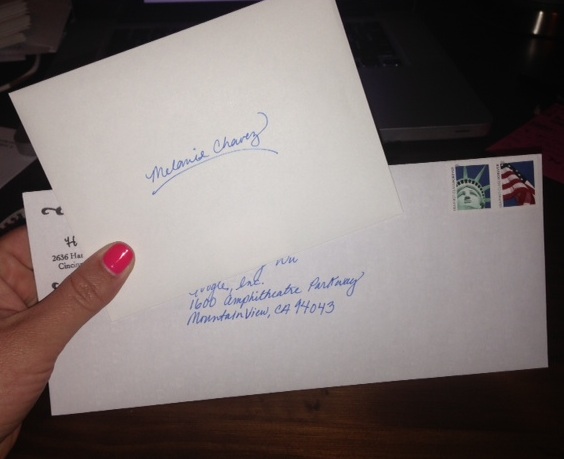 Melanie Chavez
H
2636 Ha
Cincin
Inc.
1600 Amphitheatre Parkway
Mountain View, CA 94043